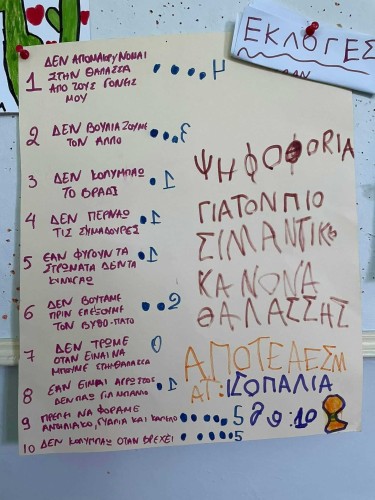 ΕΚΛΟΓΕΣ
1 ΔΕΝ ΑΠΟΜΑΚΡΥΝΟΜΑΙ
ΣΤΗΝ ΘΑΛΑΣΣΑ
ΑΠΟ ΤΟΥΣ ΓΟΝΕΙΣ
ΜΟΥ
2 ΔΕΝ ΒΟΥΛΙΑΖΟΥΜΕ
ΤΟΝ ΑΛΛΟ
3 ΔΕΝ ΚΟΛΥΜΠΑΩ 1
ΤΟ ΒΡΑΔΙ
4 ΔΕΝ ΠΕΡΝΑΩ 1
ΤΙΣ ΣΥΜΑΔΟΥΡΕΣ
5 ΕΑΝ ΦΥΓΟΥΝ ΤΑ 1
ΣΤΡΩΜΑΤΑ ΔΕΝ ΤΑ
ΚΙΝΙΓΑΩ
6 ΔΕΝ ΒΟΥΤΑΜΕ 2
ΠΡΙΝ ΕΛΕΞΟΥΜΕ
ΤΟΝ ΒΥΘΟ-ΠΑΤΟ
7 ΔΕΝ ΤΡΩΜΕ 0
ΟΤΑΝ ΕΙΝΑΙ ΝΑ
ΜΠΟΥΜΕ ΣΤΗ ΘΑΛΑΣΣΑ
8 ΕΑΝ ΕΙΜΑΙ ΑΡΩΣΤΟΣ 1
ΔΕΝ ΠΑΩ ΓΙΑ ΜΠΑΝΙΟ
9 ΠΡΕΠΗ ΝΑ ΦΟΡΑΜΕ 5
ΑΝΤΙΛΙΑΚΟ, ΓΥΑΛΙΑ ΚΑΙ ΚΑΠΕΛΟ
10 ΔΕΝ ΚΟΛΥΜΠΑΩ ΟΤΑΝ ΒΡΕΧΕΙ 5
ΨΗΦΟΦΟΡΙΑ
ΓΙΑ ΤΟΝ ΠΙΟ
ΣΙΜΑΝΤΙΚΟ
ΚΑΝΟΝΑ
ΘΑΛΑΣΣΗΣ
ΑΠΟΤΕΛΕΣΜ
ΑΤ: ΙΣΟΠΑΛΙΑ